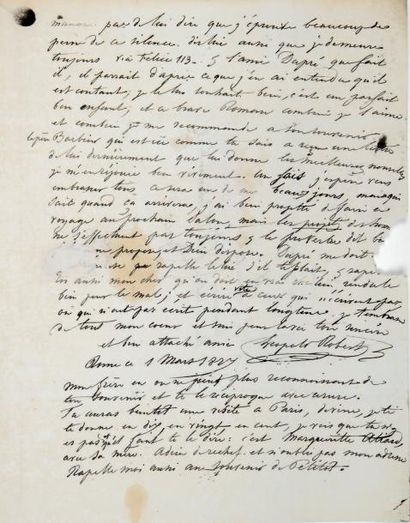 manque pas de lui dire que j'éprouve beaucoup de
peine de ce silence. dis lui aussi que je demeure
toujours via Felice 113. L'ami Dupré que fait
il, il parait d'après ce que j'en ai entendu qu'il
est content, je le lui souhaite bien, c'est un parfait
bon enfant, et ce brave Roman combien je l'aime
et combien je me recommande à son souvenir.
le père Barbier qui est ici comme tu sais a reçu une lettre
de lui dernièrement qui lui donne les meilleures nouvelles
je m'en réjouis bien vivement. En fait j'espère vous
embrasser tous ce sera un de mes beaux jours, mais qui
sait quand ça arrivera, j'ai bien projetté de faire ce
voyage au prochain Salon mais les projets des hommes
ne s'effectuent pas toujours, & le proverbe dit l'homme
propose et Dieu dispose. Dupré me doit
se rapelle lui s'il te plait,
toi aussi mon cher qui
bien pour le mal, et écris vite à ceux qui
ou qui n'ont pas écrit pendant longtems. Je t'embrasse
de tout mon coeur et suis pour la vie ton sincère
et bien attaché ami Leopold Robert
Rome ce 1 Mars 1827
mon frère on ne peut plus reconnoissant de
ton souvenir et te le réciproque avec usure.
Tu auras bientôt une visite à Paris, devine, je te
le donne en dix en vingt en cent, je vois que tu n'y
es pas & qu'il faut te le dire: c'est Marguerite
avec sa mère. Adieu derechef et n'oublie pas mon adresse
Rapelle moi aussi au souvenir de Petitot.